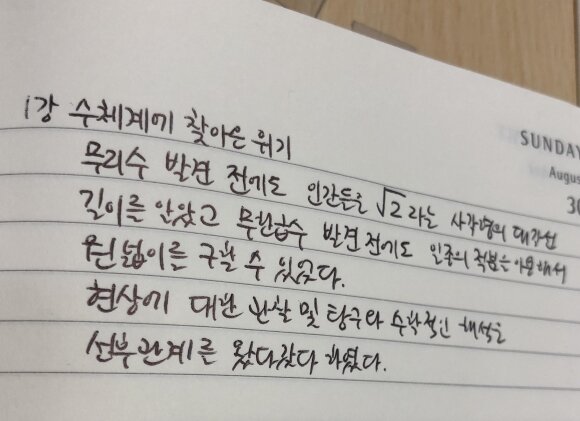 1강 수체계에 찾아온 위기
무리수 발견 전에도 인간들은 √2 라는 사각형의 대각선
길이를 알았고 무한급수 발견 전에도 일종의 적분을 이용해서
원넓이를 구할 수 있었다.
현상에 대한 관찰 및 탐구와 수학적인 해석은
선후관계를 왔다갔다 하였다.
SUNDAY
Augus
30